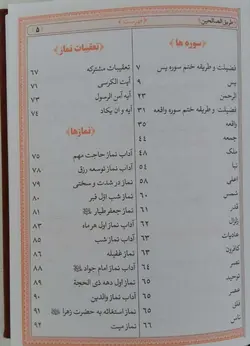 طریق الصالحین
فهرست
۵
﴿سوره ها﴾
فضیلت و طریقه ختم سوره یس ۷
یس ۹
الرحمن ۲۳
فضیلت و طریقه ختم سوره واقعه ۳۱
واقعه ۳۵
جمعه ۴۴
ملک ۴۸
نبأ ۵۴
اعلی ۵۸
شمس ۵۹
قدر ۶۱
زلزال ۶۲
عادیات ۶۳
کافرون ۶۴
نصر ۶۴
توحید ۶۵
فلق ۶۵
ناس ۶۶
﴿تعقیبات نماز﴾
تعقیبات مشترکه ۶۷
آیت الکرسی ۷۱
آیه آمن الرسول ۷۳
آیه و ان یکاد ۷۴
﴿نمازها﴾
آداب نماز حاجت مهم ۷۵
آداب نماز توسعه رزق ۷۸
نماز در شدت و سختی ۷۹
نماز شب اوّل قبر ۸۰
نماز جعفر طیار ۸۱
آداب نماز اول هر ماه ۸۳
آداب نماز شب ۸۵
نماز غفیله ۸۶
آداب نماز امام جواد ۸۸
نماز اول دهه ذی الحجة ۸۹
آداب نماز والدین ۹۰
نماز استغاثه به حضرت زهرا ۹۱
نماز میت ۹۲